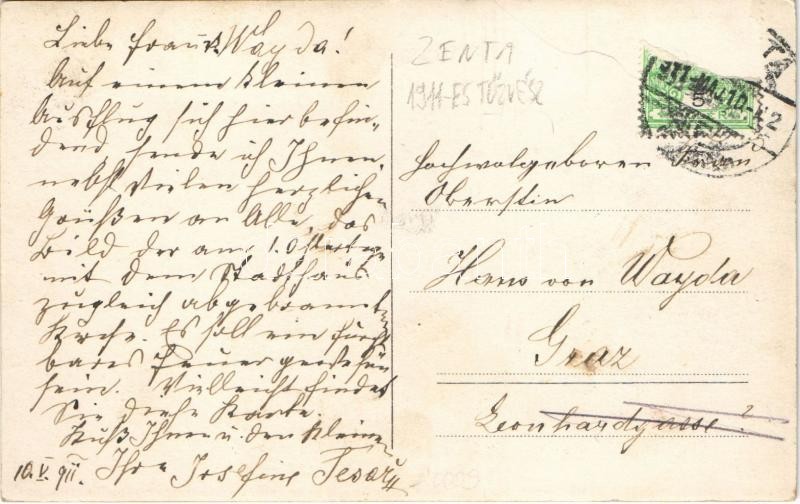 Liebe Frau v. Wayda!
Auf einem kleinen
Ausflug sich hier befin-
dend sende ich Ihnen
nebst vielen herzlichen
Grüßen an Alle, das
Bild der am 1. Ostertage
mit dem Stadthaus
zugleich abgebrannte
Kirche. Es soll ein furcht
bares Feuer gewesen
sein. Vielleicht findet
Sie diese Karte.
Kuß Ihnen u. den Kleinen
10. V. 911. Ihre Josefine
ZENTA
1911-ES TŰZVÉSZ
911 MÁJ 10
Hochwolgeboren
Oberstin
Hans von Wayda
Graz
Leonhardgasse?